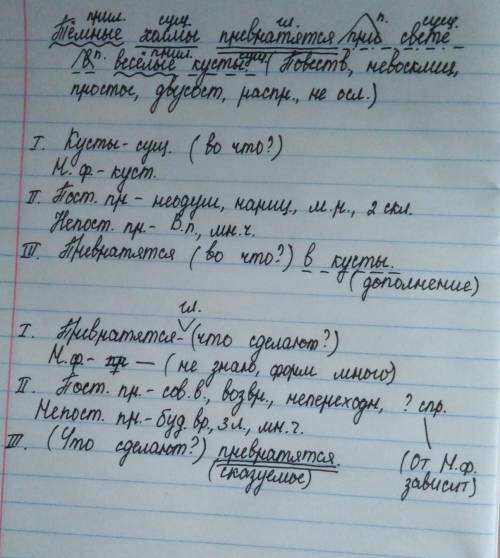 прил. сущ. гл. п. сущ.
Тёмные холмы превратятся при свете
п. прил. сущ.
в весёлые кусты. (Повеств., невосклиц.,
простое, двусост., распр., не осл.)
I. Кусты - сущ. (во что?)
Н.ф. - куст.
II. Пост. пр - неодуш., нариц., м.р., 2 скл.
Непост. пр. - В.п., мн.ч.
III. Превратятся (во что?) в кусты.
(дополнение)
гл.
I. Превратятся - (что сделают?)
Н.ф - пр — (не знаю, форм много)
II. Пост. пр. - сов.в., возвр., непереходн., ? спр.
Непост. пр. - буд. вр., 3 л., мн.ч.
III. (Что сделают?) превратятся. (От Н.ф.
(сказуемое) зависит)